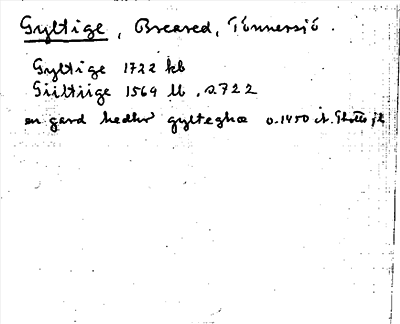 Gyltige, Breared, Tönnersjö.
Gyltige 1722 kb
Giiltiige 1569 ll, 1722
en gard hedhr gylteghæ o. 1450